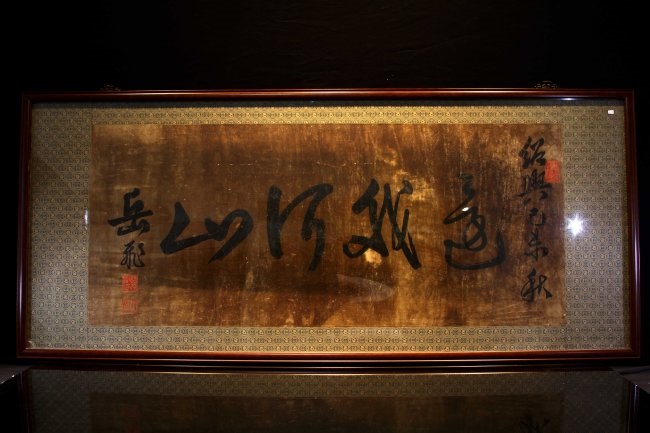 紹興己未秋
還我河山
岳飛